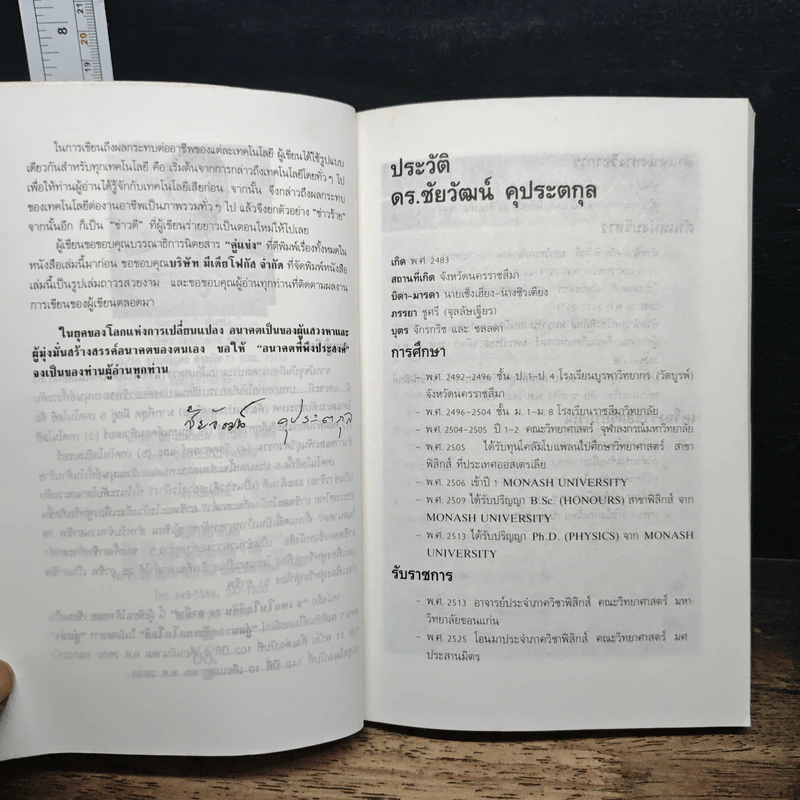 8
21
20
19
ในการเขียนถึงผลกระทบต่ออาชีพของแต่ละเทคโนโลยี ผู้เขียนได้ใช้รูปแบบ
เดียวกันสำหรับทุกเทคโนโลยี คือ เริ่มต้นจากการกล่าวถึงเทคโนโลยีโดยทั่ว ๆ ไป
เพื่อให้ท่านผู้อ่านได้รู้จักกับเทคโนโลยีเสียก่อน จากนั้น จึงกล่าวถึงผลกระทบ
ของเทคโนโลยีต่องานอาชีพเป็นภาพรวมทั่ว ๆ ไป แล้วจึงยกตัวอย่าง "ข่าวร้าย"
จากนั้นอีก ก็เป็น "ข่าวดี" ที่ผู้เขียนร่ายยาวเป็นตอนใหม่ให้ไปเลย
ผู้เขียนขอขอบคุณบรรณาธิการนิตยสาร "คู่แข่ง" ที่ตีพิมพ์เรื่องทั้งหมดใน
หนังสือเล่มนี้มาก่อน ขอขอบคุณบริษัท มีเดียโฟกัส จำกัด ที่จัดพิมพ์หนังสือ
เล่มนี้เป็นรูปเล่มถาวรสวยงาม และขอขอบคุณผู้อ่านทุกท่านที่ติดตามผลงาน
การเขียนของผู้เขียนตลอดมา
ในยุคของโลกแห่งการเปลี่ยนแปลง อนาคตเป็นของผู้แสวงหาและ
ผู้มุ่งมั่นสร้างสรรค์อนาคตของตนเอง ขอให้ "อนาคตที่พึงประสงค์"
จงเป็นของท่านผู้อ่านทุกท่าน
ชัยวัฒน์ คุประตกุล
ประวัติ
ดร.ชัยวัฒน์ คุประตกุล
เกิด พ.ศ. 2483
สถานที่เกิด จังหวัดนครราชสีมา
บิดา-มารดา นายเซ็งเฮียง-นางซิวเตียง
ภรรยา ชูศรี (จุลลัษเฐียร)
บุตร จักรกริช และ ชลลดา
การศึกษา
- พ.ศ. 2492-2496 ชั้น ป. 1-ป. 4 โรงเรียนบูรพาวิทยากร (วัดบูรพ์)
จังหวัดนครราชสีมา
- พ.ศ. 2496-2504 ชั้น ม. 1-ม. 8 โรงเรียนราชสีมาวิทยาลัย
- พ.ศ. 2504-2505 ปี 1-2 คณะวิทยาศาสตร์ จุฬาลงกรณ์มหาวิทยาลัย
- พ.ศ. 2505 ได้รับทุนโคลัมโบแพลนไปศึกษาวิทยาศาสตร์ สาขา
ฟิสิกส์ ที่ประเทศออสเตรเลีย
- พ.ศ. 2506 เข้าปี 1 MONASH UNIVERSITY
- พ.ศ. 2509 ได้รับปริญญา B.Sc. (HONOURS) สาขาฟิสิกส์ จาก
MONASH UNIVERSITY
- พ.ศ. 2513 ได้รับปริญญา Ph.D. (PHYSICS) จาก MONASH
UNIVERSITY
รับราชการ
- พ.ศ. 2513 อาจารย์ประจำภาควิชาฟิสิกส์ คณะวิทยาศาสตร์ มหา-
วิทยาลัยขอนแก่น
- พ.ศ. 2525 โอนมาประจำภาควิชาฟิสิกส์ คณะวิทยาศาสตร์ มศว
ประสานมิตร